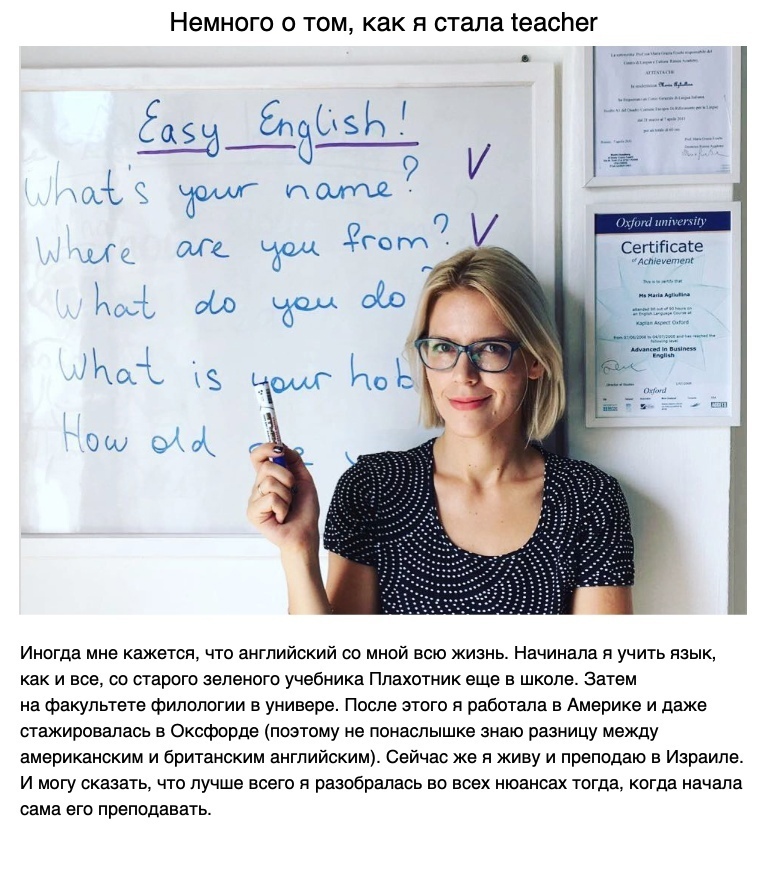 Немного о том, как я стала teacher
Easy English!
What's your name? V
Where are you from? V
What do you do
What is your hob
How old
Oxford university
Certificate
of Achievement
This is to certify that
Ms Maria Agliullina
attended 60 out of 60 hours on
an English Language Course at
Kaplan Aspect Oxford
Advanced in Business
English
Oxford
Иногда мне кажется, что английский со мной всю жизнь. Начинала я учить язык,
как и все, со старого зеленого учебника Плахотник еще в школе. Затем
на факультете филологии в универе. После этого я работала в Америке и даже
стажировалась в Оксфорде (поэтому не понаслышке знаю разницу между
американским и британским английским). Сейчас же я живу и преподаю в Израиле.
И могу сказать, что лучше всего я разобралась во всех нюансах тогда, когда начала
сама его преподавать.